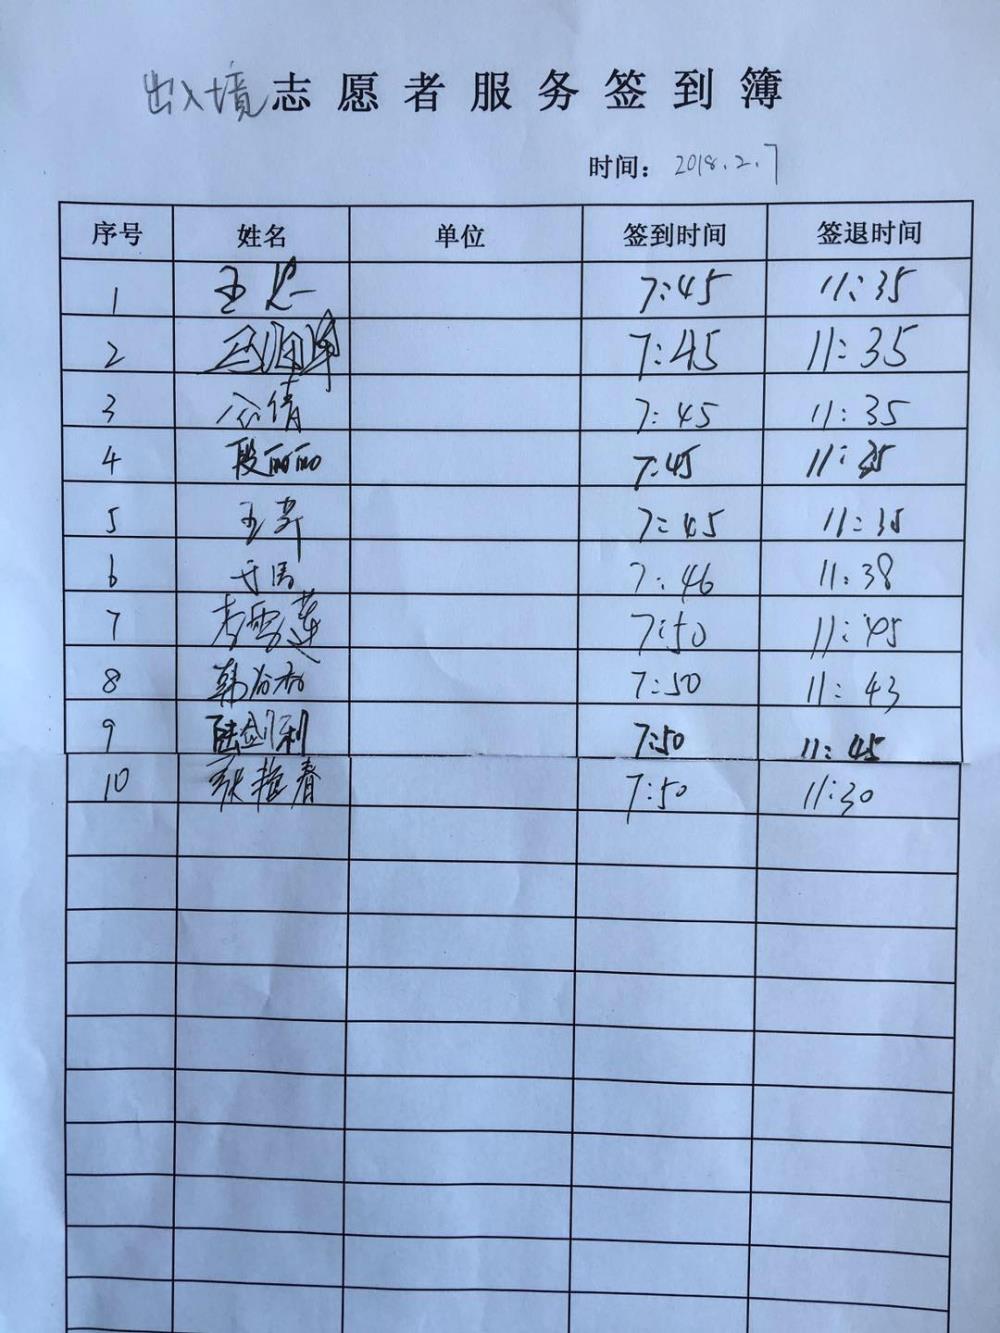 出入境志愿者服务签到簿
时间： 2018.2.7
序号 姓名 单位 签到时间 签退时间
1 王 7:45 11:35
2 7:45 11:35
3 谷倩 7:45 11:35
4 段丽丽 7:45 11:35
5 王 7:45 11:35
6 7:46 11:38
7 李雪莲 7:50 11:45
8 韩 7:50 11:43
9 陆剑利 7:50 11:45
10 张艳春 7:50 11:30